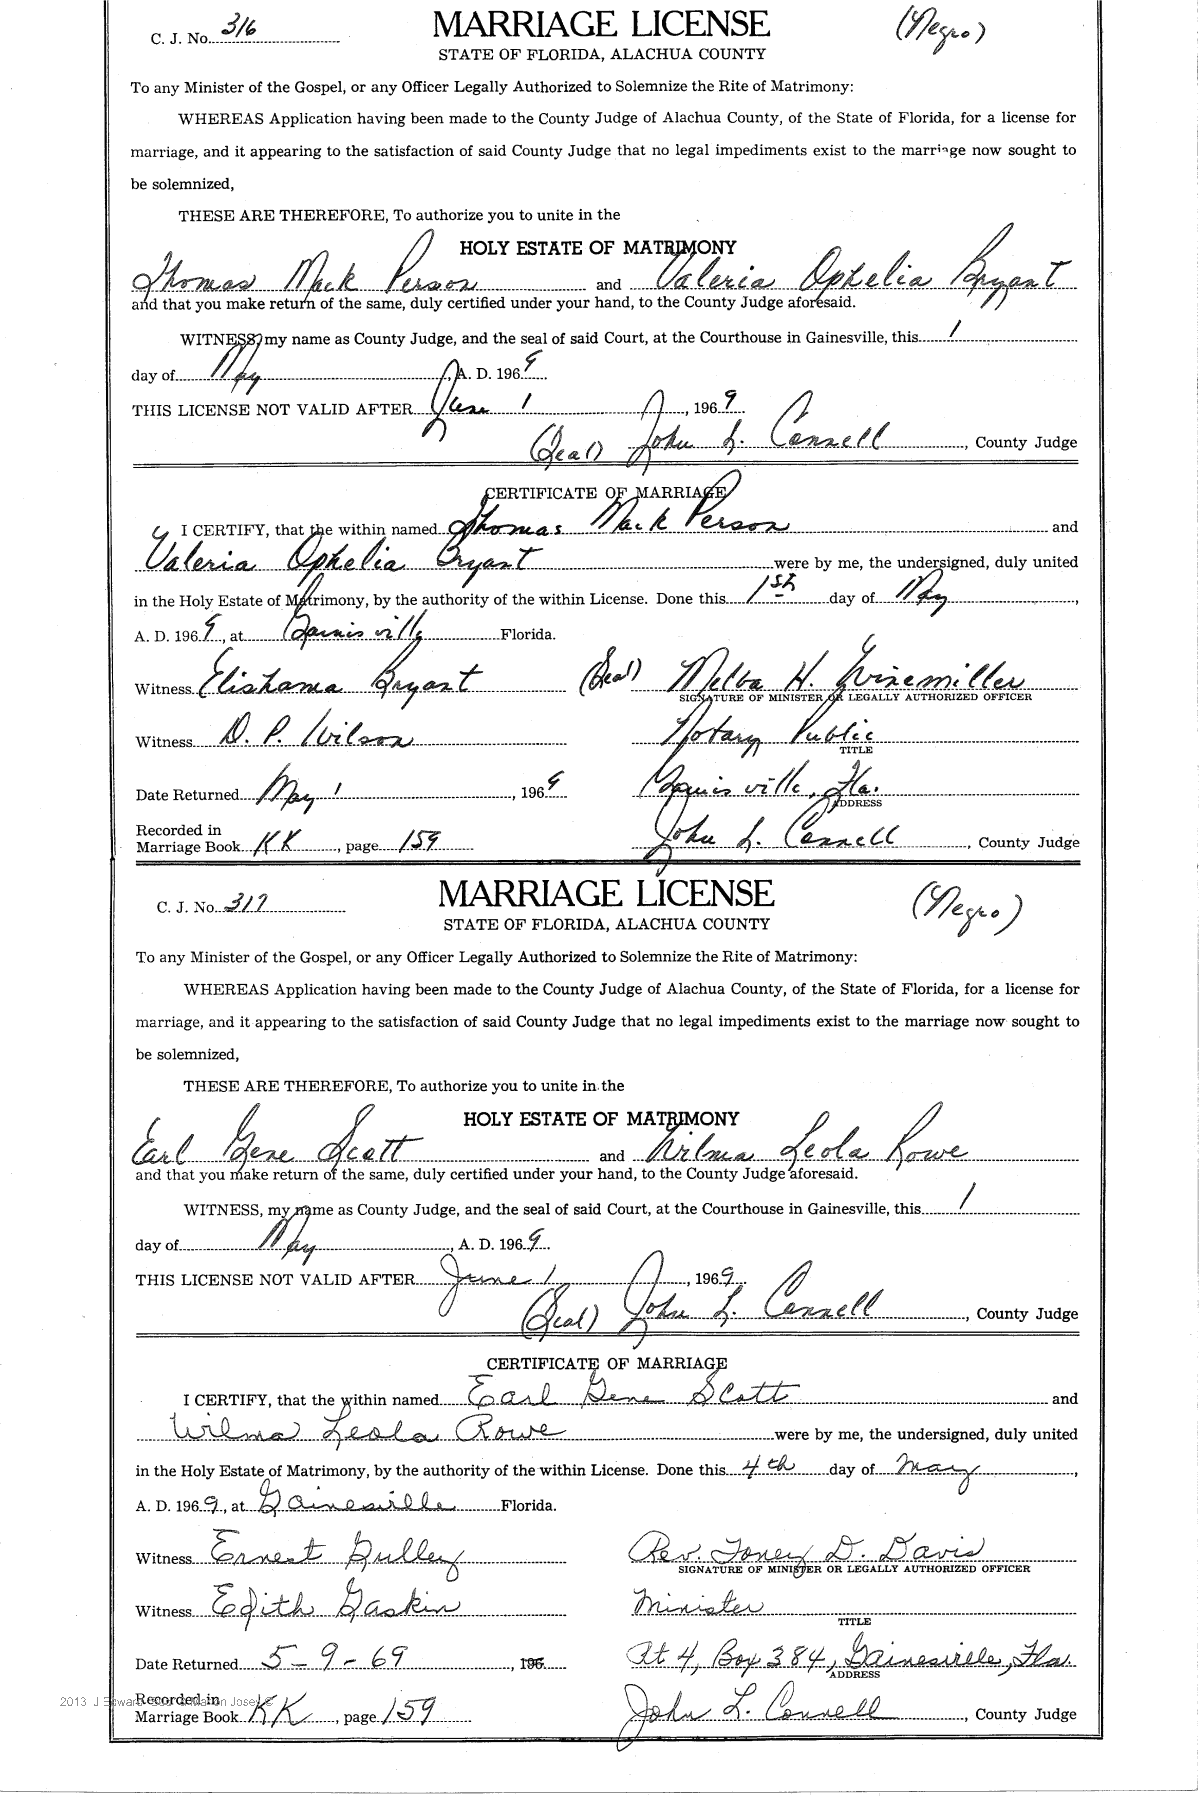 C. J. No. 316 MARRIAGE LICENSE (Negro)
STATE OF FLORIDA, ALACHUA COUNTY
To any Minister of the Gospel, or any Officer Legally Authorized to Solemnize the Rite of Matrimony:
WHEREAS Application having been made to the County Judge of Alachua County, of the State of Florida, for a license for
marriage, and it appearing to the satisfaction of said County Judge that no legal impediments exist to the marriage now sought to
be solemnized,
THESE ARE THEREFORE, To authorize you to unite in the
HOLY ESTATE OF MATRIMONY
Thomas Mack Person and Valeria Ophelia Bryant
and that you make return of the same, duly certified under your hand, to the County Judge aforesaid.
WITNESS, my name as County Judge, and the seal of said Court, at the Courthouse in Gainesville, this 1
day of May, A. D. 1969
THIS LICENSE NOT VALID AFTER June 1, 1969
(Seal) John L. Connell, County Judge
CERTIFICATE OF MARRIAGE
I CERTIFY, that the within named Thomas Mack Person and
Valeria Ophelia Bryant were by me, the undersigned, duly united
in the Holy Estate of Matrimony, by the authority of the within License. Done this 1st day of May,
A. D. 1969, at Gainesville Florida.
Witness Elishama Bryant (Seal) Melba H. Winemiller
SIGNATURE OF MINISTER OR LEGALLY AUTHORIZED OFFICER
Witness D. P. Wilson Notary Public
TITLE
Date Returned May 1, 1969 Gainesville, Fla.
ADDRESS
Recorded in
Marriage Book KK, page 159 John L. Connell, County Judge
C. J. No. 317 MARRIAGE LICENSE (Negro)
STATE OF FLORIDA, ALACHUA COUNTY
To any Minister of the Gospel, or any Officer Legally Authorized to Solemnize the Rite of Matrimony:
WHEREAS Application having been made to the County Judge of Alachua County, of the State of Florida, for a license for
marriage, and it appearing to the satisfaction of said County Judge that no legal impediments exist to the marriage now sought to
be solemnized,
THESE ARE THEREFORE, To authorize you to unite in the
HOLY ESTATE OF MATRIMONY
Earl Gene Scott and Wilma Leola Rowe
and that you make return of the same, duly certified under your hand, to the County Judge aforesaid.
WITNESS, my name as County Judge, and the seal of said Court, at the Courthouse in Gainesville, this 1
day of May, A. D. 1969
THIS LICENSE NOT VALID AFTER June 1, 1969
(Seal) John L. Connell, County Judge
CERTIFICATE OF MARRIAGE
I CERTIFY, that the within named Earl Gene Scott and
Wilma Leola Rowe were by me, the undersigned, duly united
in the Holy Estate of Matrimony, by the authority of the within License. Done this 4th day of May,
A. D. 1969, at Gainesville Florida.
Witness Ernest Gulley Rev. Toney D. Davis
SIGNATURE OF MINISTER OR LEGALLY AUTHORIZED OFFICER
Witness Edith Gaskin Minister
TITLE
Date Returned 5-9-69, 196 Rt 4, Box 384, Gainesville, Fla.
ADDRESS
2013 J Edward
Recorded in
Marriage Book KK, page 159 John L. Connell, County Judge